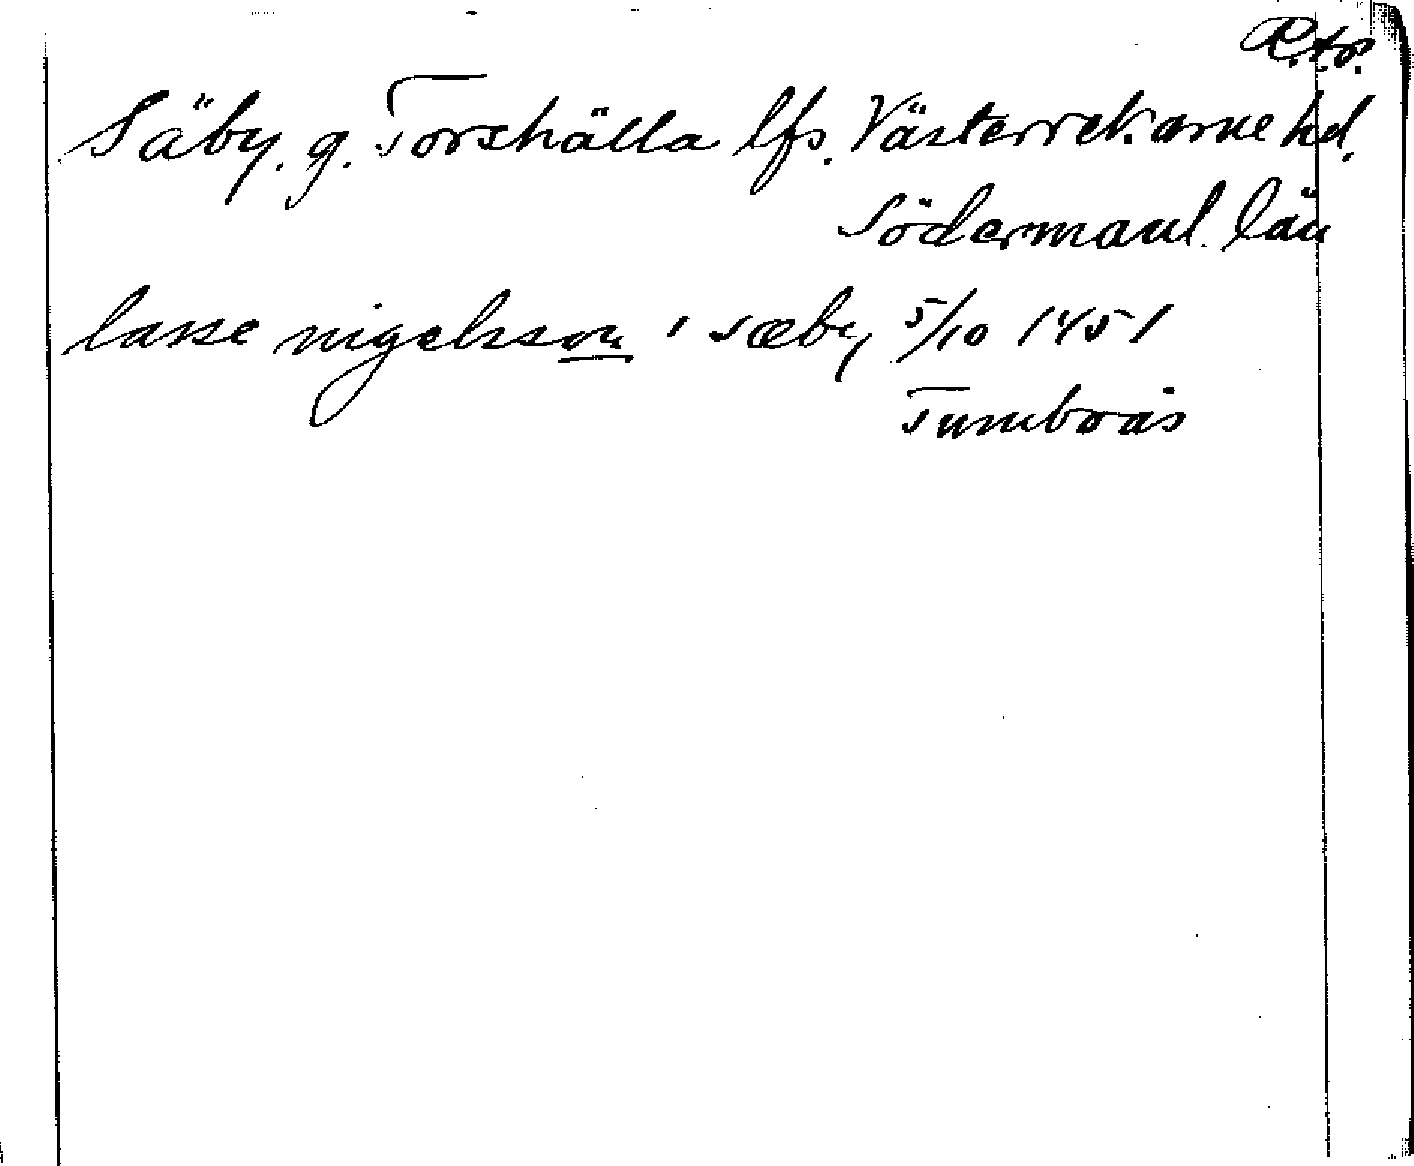 R.A.P.
Säby. g. Torshälla lfs. Västerrekarne hd.
Södermanl. län
lasse nigelsson i sæby 5/10 1451
Tumboås